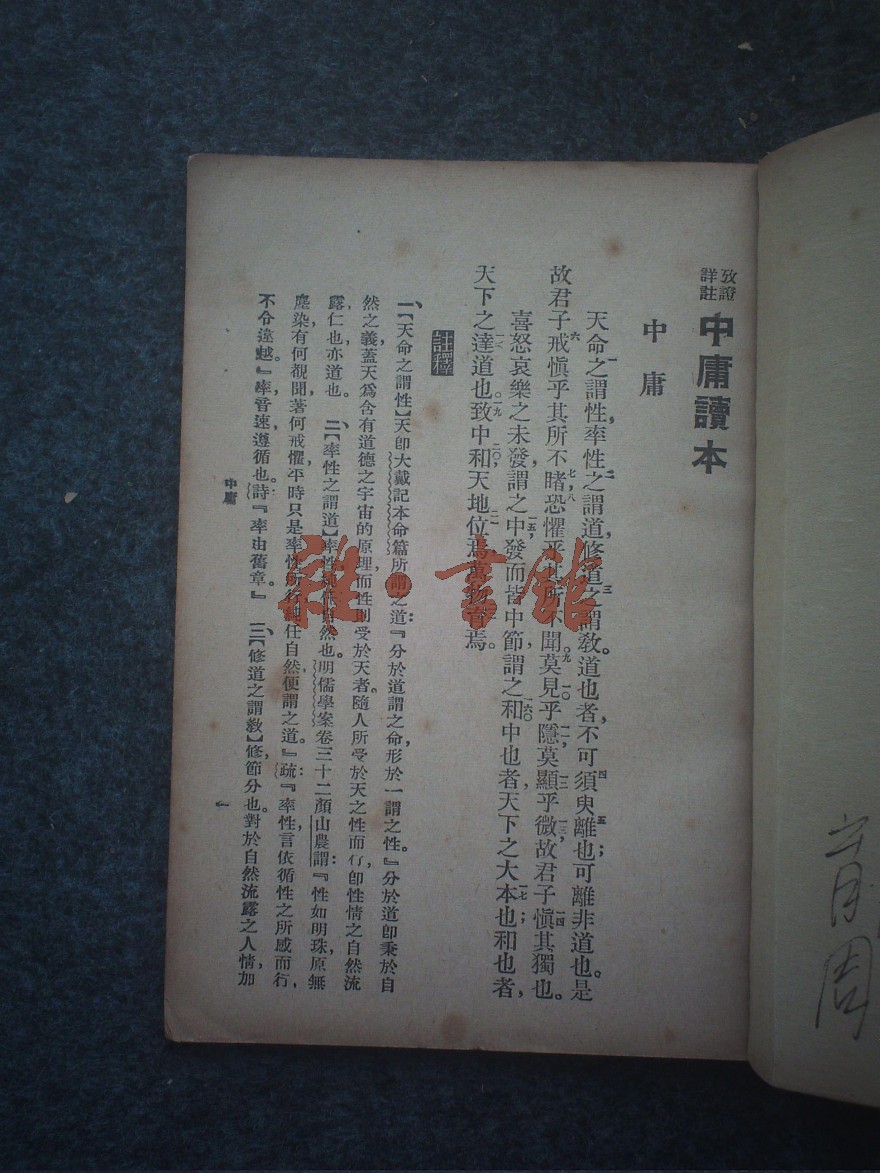 攷證
詳註
中庸讀本
中庸
天命之謂性，率性之謂道，修道之謂敎。道也者，不可須臾離也；可離，非道也。是
故君子戒愼乎其所不睹，恐懼乎其所不聞。莫見乎隱，莫顯乎微，故君子愼其獨也。
喜怒哀樂之未發，謂之中；發而皆中節，謂之和。中也者，天下之大本也；和也者，
天下之達道也。致中和，天地位焉，萬物育焉。
註釋
一、【天命之謂性】天卽大戴記本命篇所謂之道：『分於道謂之命，形於一謂之性。』分於道卽秉於自
然之義，蓋天爲含有道德之宇宙的原理，而性則受於天者。隨人所受於天之性而行，卽性情之自然流
露，仁也，亦道也。 二、【率性之謂道】率性 自然也。明儒學案卷三十二顏山農謂：『性如明珠，原無
塵染，有何覩聞？著何戒懼？平時只是率性所行，純任自然，便謂之道。』疏：『率性，言依循性之所感而行，
不令違越。』率音速，遵循也。詩：『率由舊章。』 三、【修道之謂敎】修，節分也。對於自然流露之人情，加
中庸
一
雜·書館
六月周